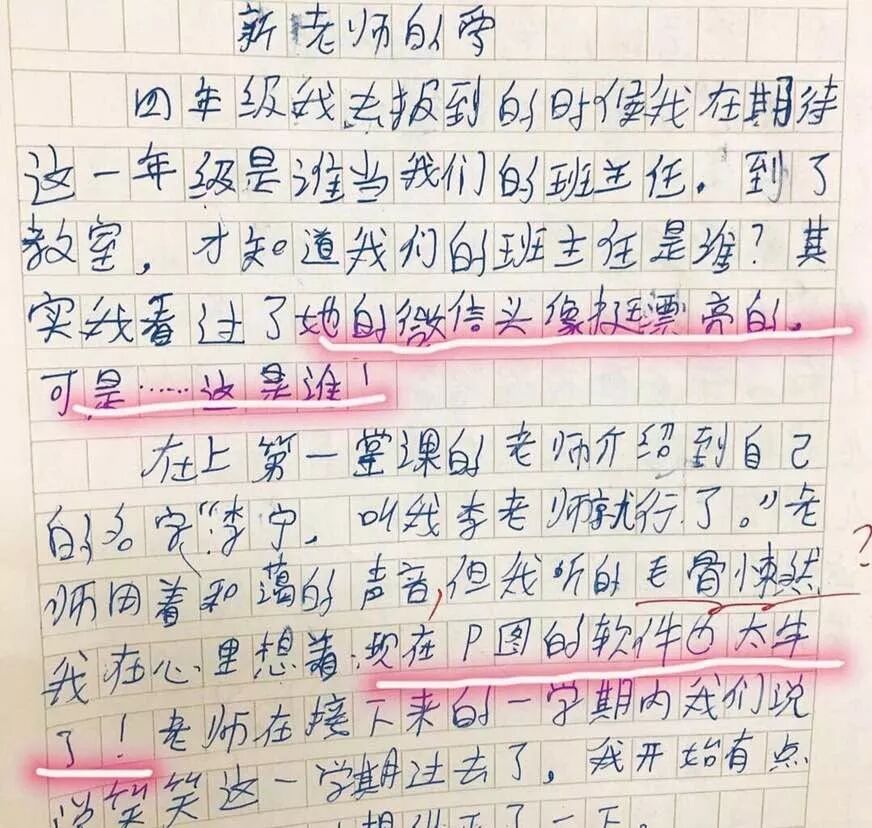 新老师的
四年级我去报到的时候我在期待
这一年级是谁当我们的班主任。到了
教室，才知道我们的班主任是谁？其
实我看过了她的微信头像挺漂亮的，
可是……这是谁！
在上第一堂课的老师介绍到自己
的名字“李宁，叫我李老师就行了。”老
师用着和蔼的声音，但我听的毛骨悚然
?
我在心里想着：现在P图的软件也太牛
了！老师在接下来的一学期内我们说
说笑笑这一学期过去了，我开始有点
了一下。